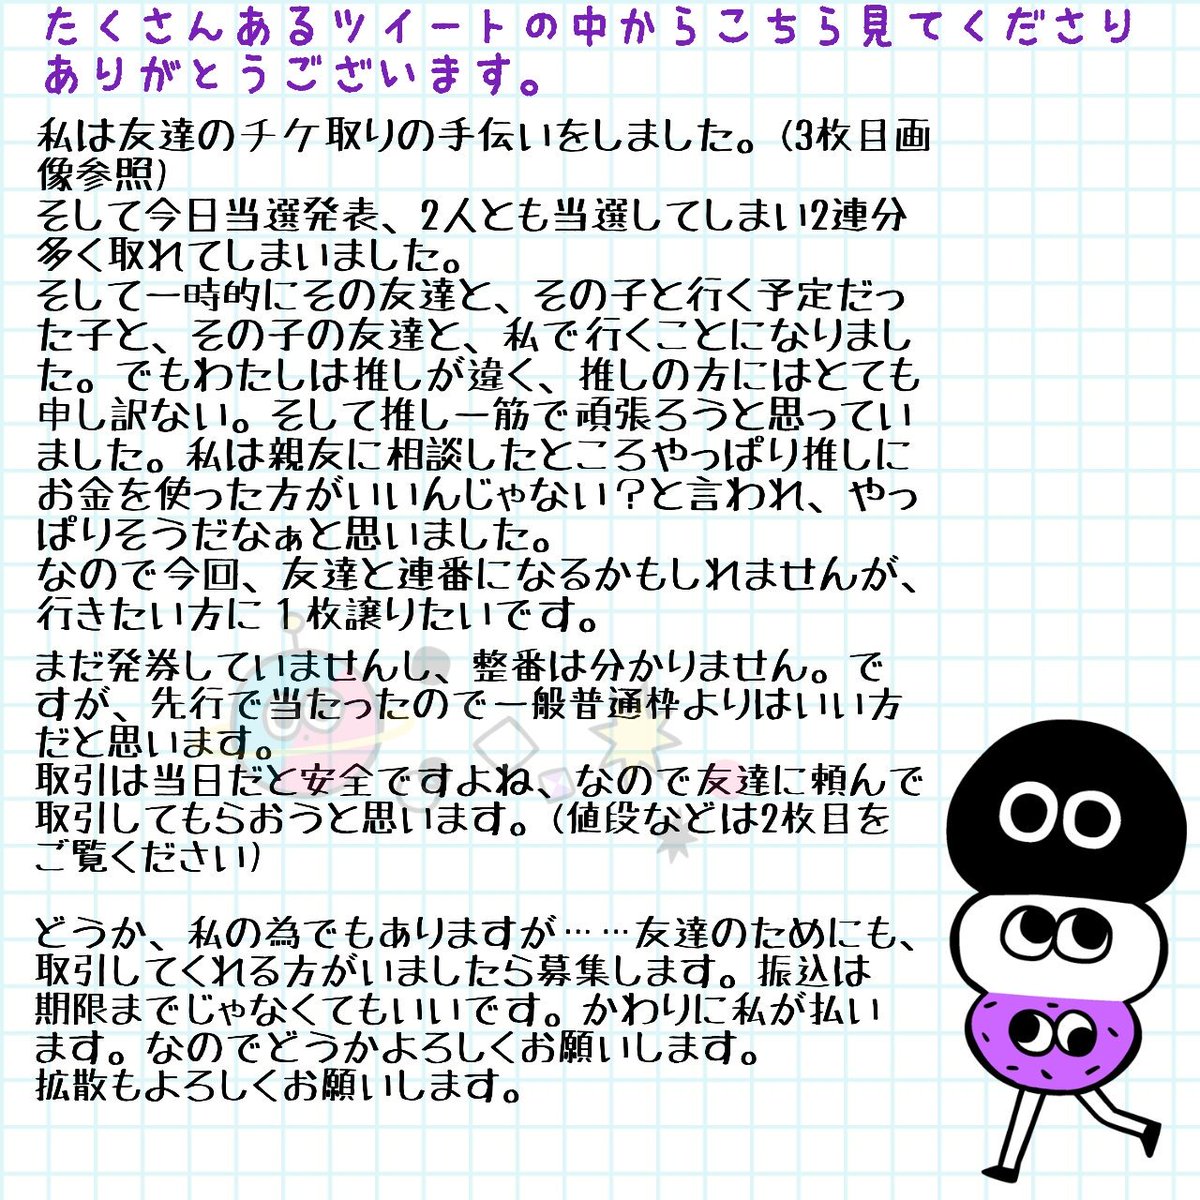 たくさんあるツイートの中からこちら見てくださり
ありがとうございます。
私は友達のチケ取りの手伝いをしました。(3枚目画
像参照)
そして今日当選発表、2人とも当選してしまい2連分
多く取れてしまいました。
そして一時的にその友達と、その子と行く予定だっ
た子と、その子の友達と、私で行くことになりまし
た。でもわたしは推しが違く、推しの方にはとても
申し訳ない。そして推し一筋で頑張ろうと思ってい
ました。私は親友に相談したところやっぱり推しに
お金を使った方がいいんじゃない？と言われ、やっ
ぱりそうだなぁと思いました。
なので今回、友達と連番になるかもしれませんが、
行きたい方に１枚譲りたいです。
まだ発券していませんし、整番は分かりません。で
すが、先行で当たったので一般普通枠よりはいい方
だと思います。
取引は当日だと安全ですよね、なので友達に頼んで
取引してもらおうと思います。(値段などは2枚目を
ご覧ください)
どうか、私の為でもありますが……友達のためにも、
取引してくれる方がいましたら募集します。振込は
期限までじゃなくてもいいです。かわりに私が払い
ます。なのでどうかよろしくお願いします。
拡散もよろしくお願いします。